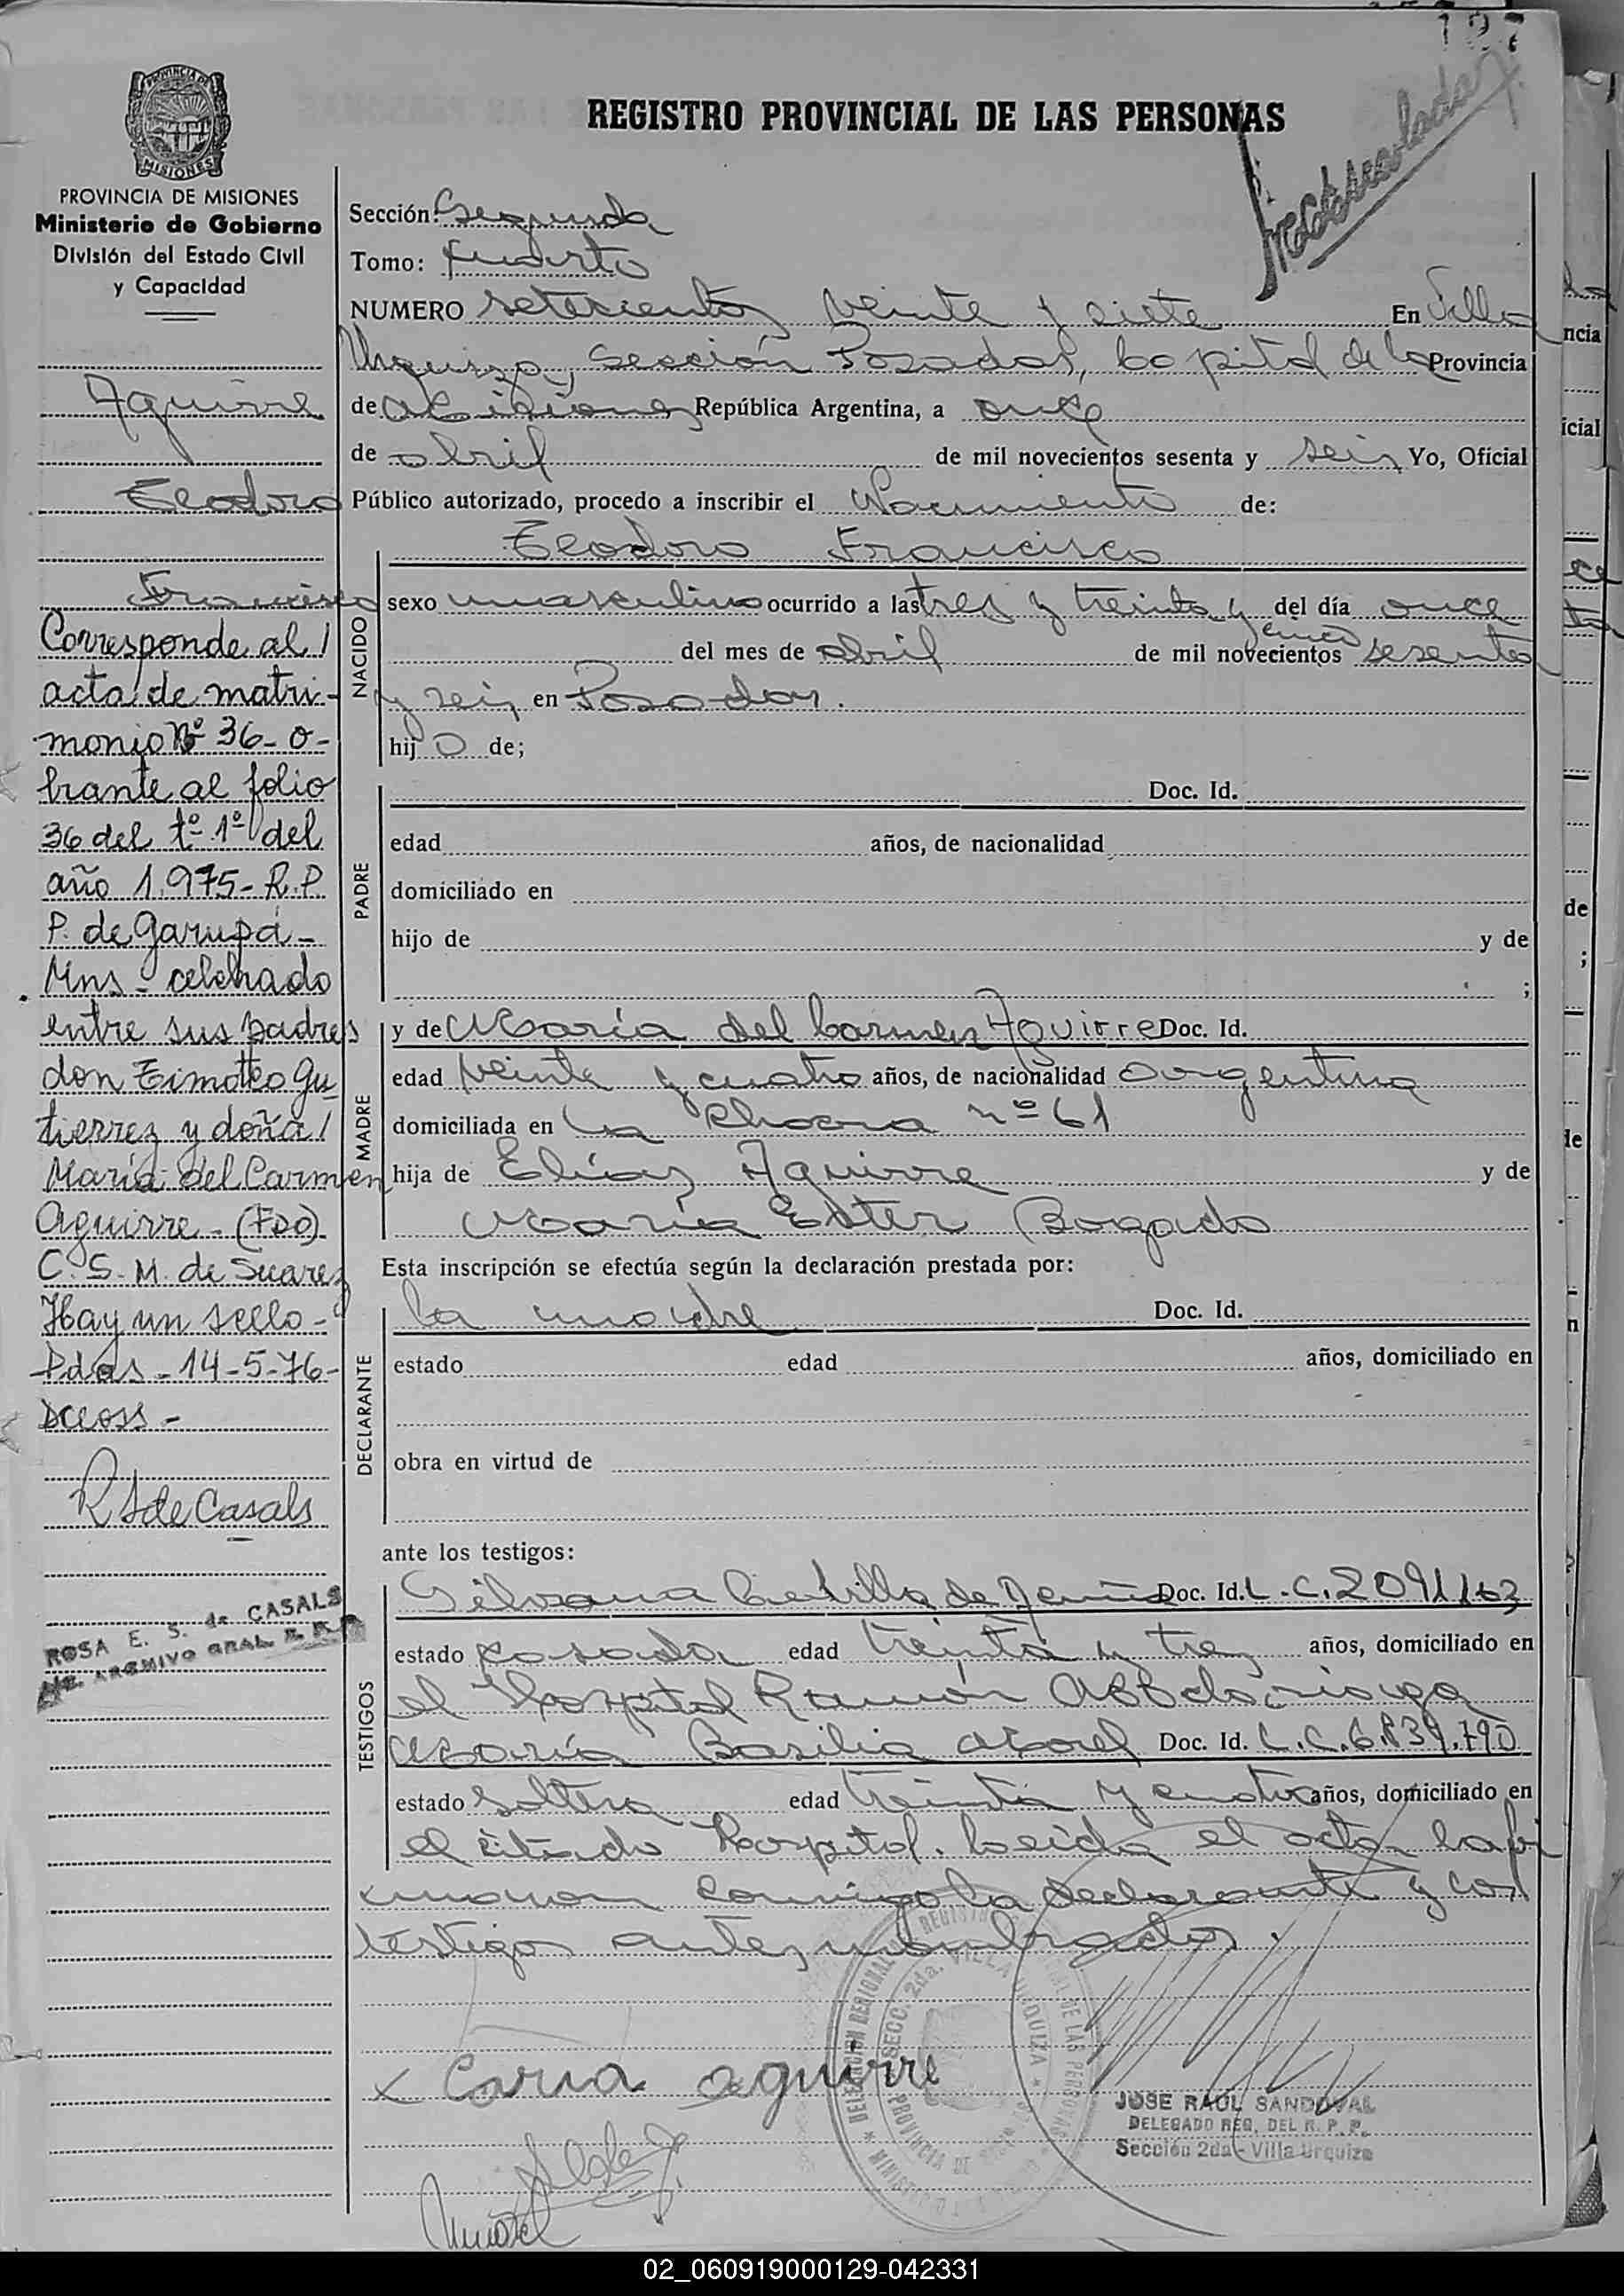 REGISTRO PROVINCIAL DE LAS PERSONAS
PROVINCIA DE MISIONES
Ministerio de Gobierno
División del Estado Civil
y Capacidad
Sección: Segunda
Tomo: Cuarto
NUMERO setecientos veinte y siete En Villa
Urquiza, Sección Posadas, Capital de la Provincia
de Misiones República Argentina, a once
de abril de mil novecientos sesenta y seis Yo, Oficial
Público autorizado, procedo a inscribir el Nacimiento de:
Aguirre
Teodoro
Francisco
Corresponde al
acta de matri-
monio Nº 36- o-
brante al folio
36 del tº 1º del
año 1.975- R.P.
P. de Garupá-
Mns- celebrado
entre sus padres
don Timoteo Gu
tierrez y doña
María del Carmen
Aguirre- (FDO)
C. S. M. de Suarez
Hay un sello-
Pdas- 14-5-76-
R S de Casals
ROSA E. S. de CASALS
ARCHIVO GRAL. R. P. P.
NACIDO
Teodoro Francisco
sexo masculino ocurrido a las tres y treinta y cinco del día once
del mes de abril de mil novecientos sesenta
y seis en Posadas.
hij o de;
PADRE
Doc. Id.
edad años, de nacionalidad
domiciliado en
hijo de y de
;
MADRE
y de María del Carmen Aguirre Doc. Id.
edad veinte y cuatro años, de nacionalidad argentina
domiciliada en La Chacra nº 61
hija de Elías Aguirre y de
María Ester Bogado
Esta inscripción se efectúa según la declaración prestada por:
DECLARANTE
la madre Doc. Id.
estado edad años, domiciliado en
obra en virtud de
ante los testigos:
TESTIGOS
Silvana de Doc. Id. L.C.2091163
estado casada edad treinta y tres años, domiciliado en
el Hospital Ramón Madariaga
María Basilia Morel Doc. Id. L.C.6.839.790
estado soltera edad treinta y cuatro años, domiciliado en
el citado Hospital. Leída el acta la fir
maron conmigo la declarante y los
testigos antes nombrados.
x Caria aguirre
JOSE RAUL SANDOVAL
DELEGADO REG. DEL R. P. P.
Sección 2da - Villa Urquiza
02_060919000129-042331